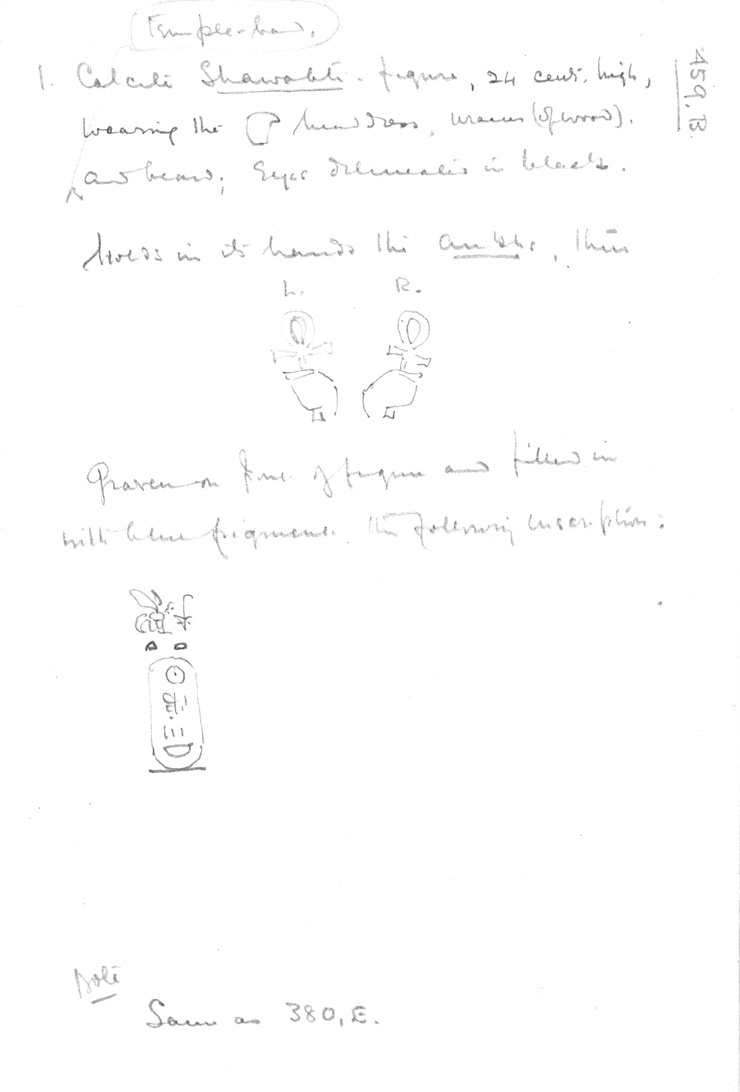 459.B.
Temple-band,
1. Calcite Shawabti-figure, 24 cent. high,
wearing the headdress, uraeus (of wood).
and beard; Eyes delineated in black.
Holds in its hands the ankhs, thus
L. R.
Graven on front of figure and filled in
with blue pigment the following inscription:
Note
Same as 380,E.